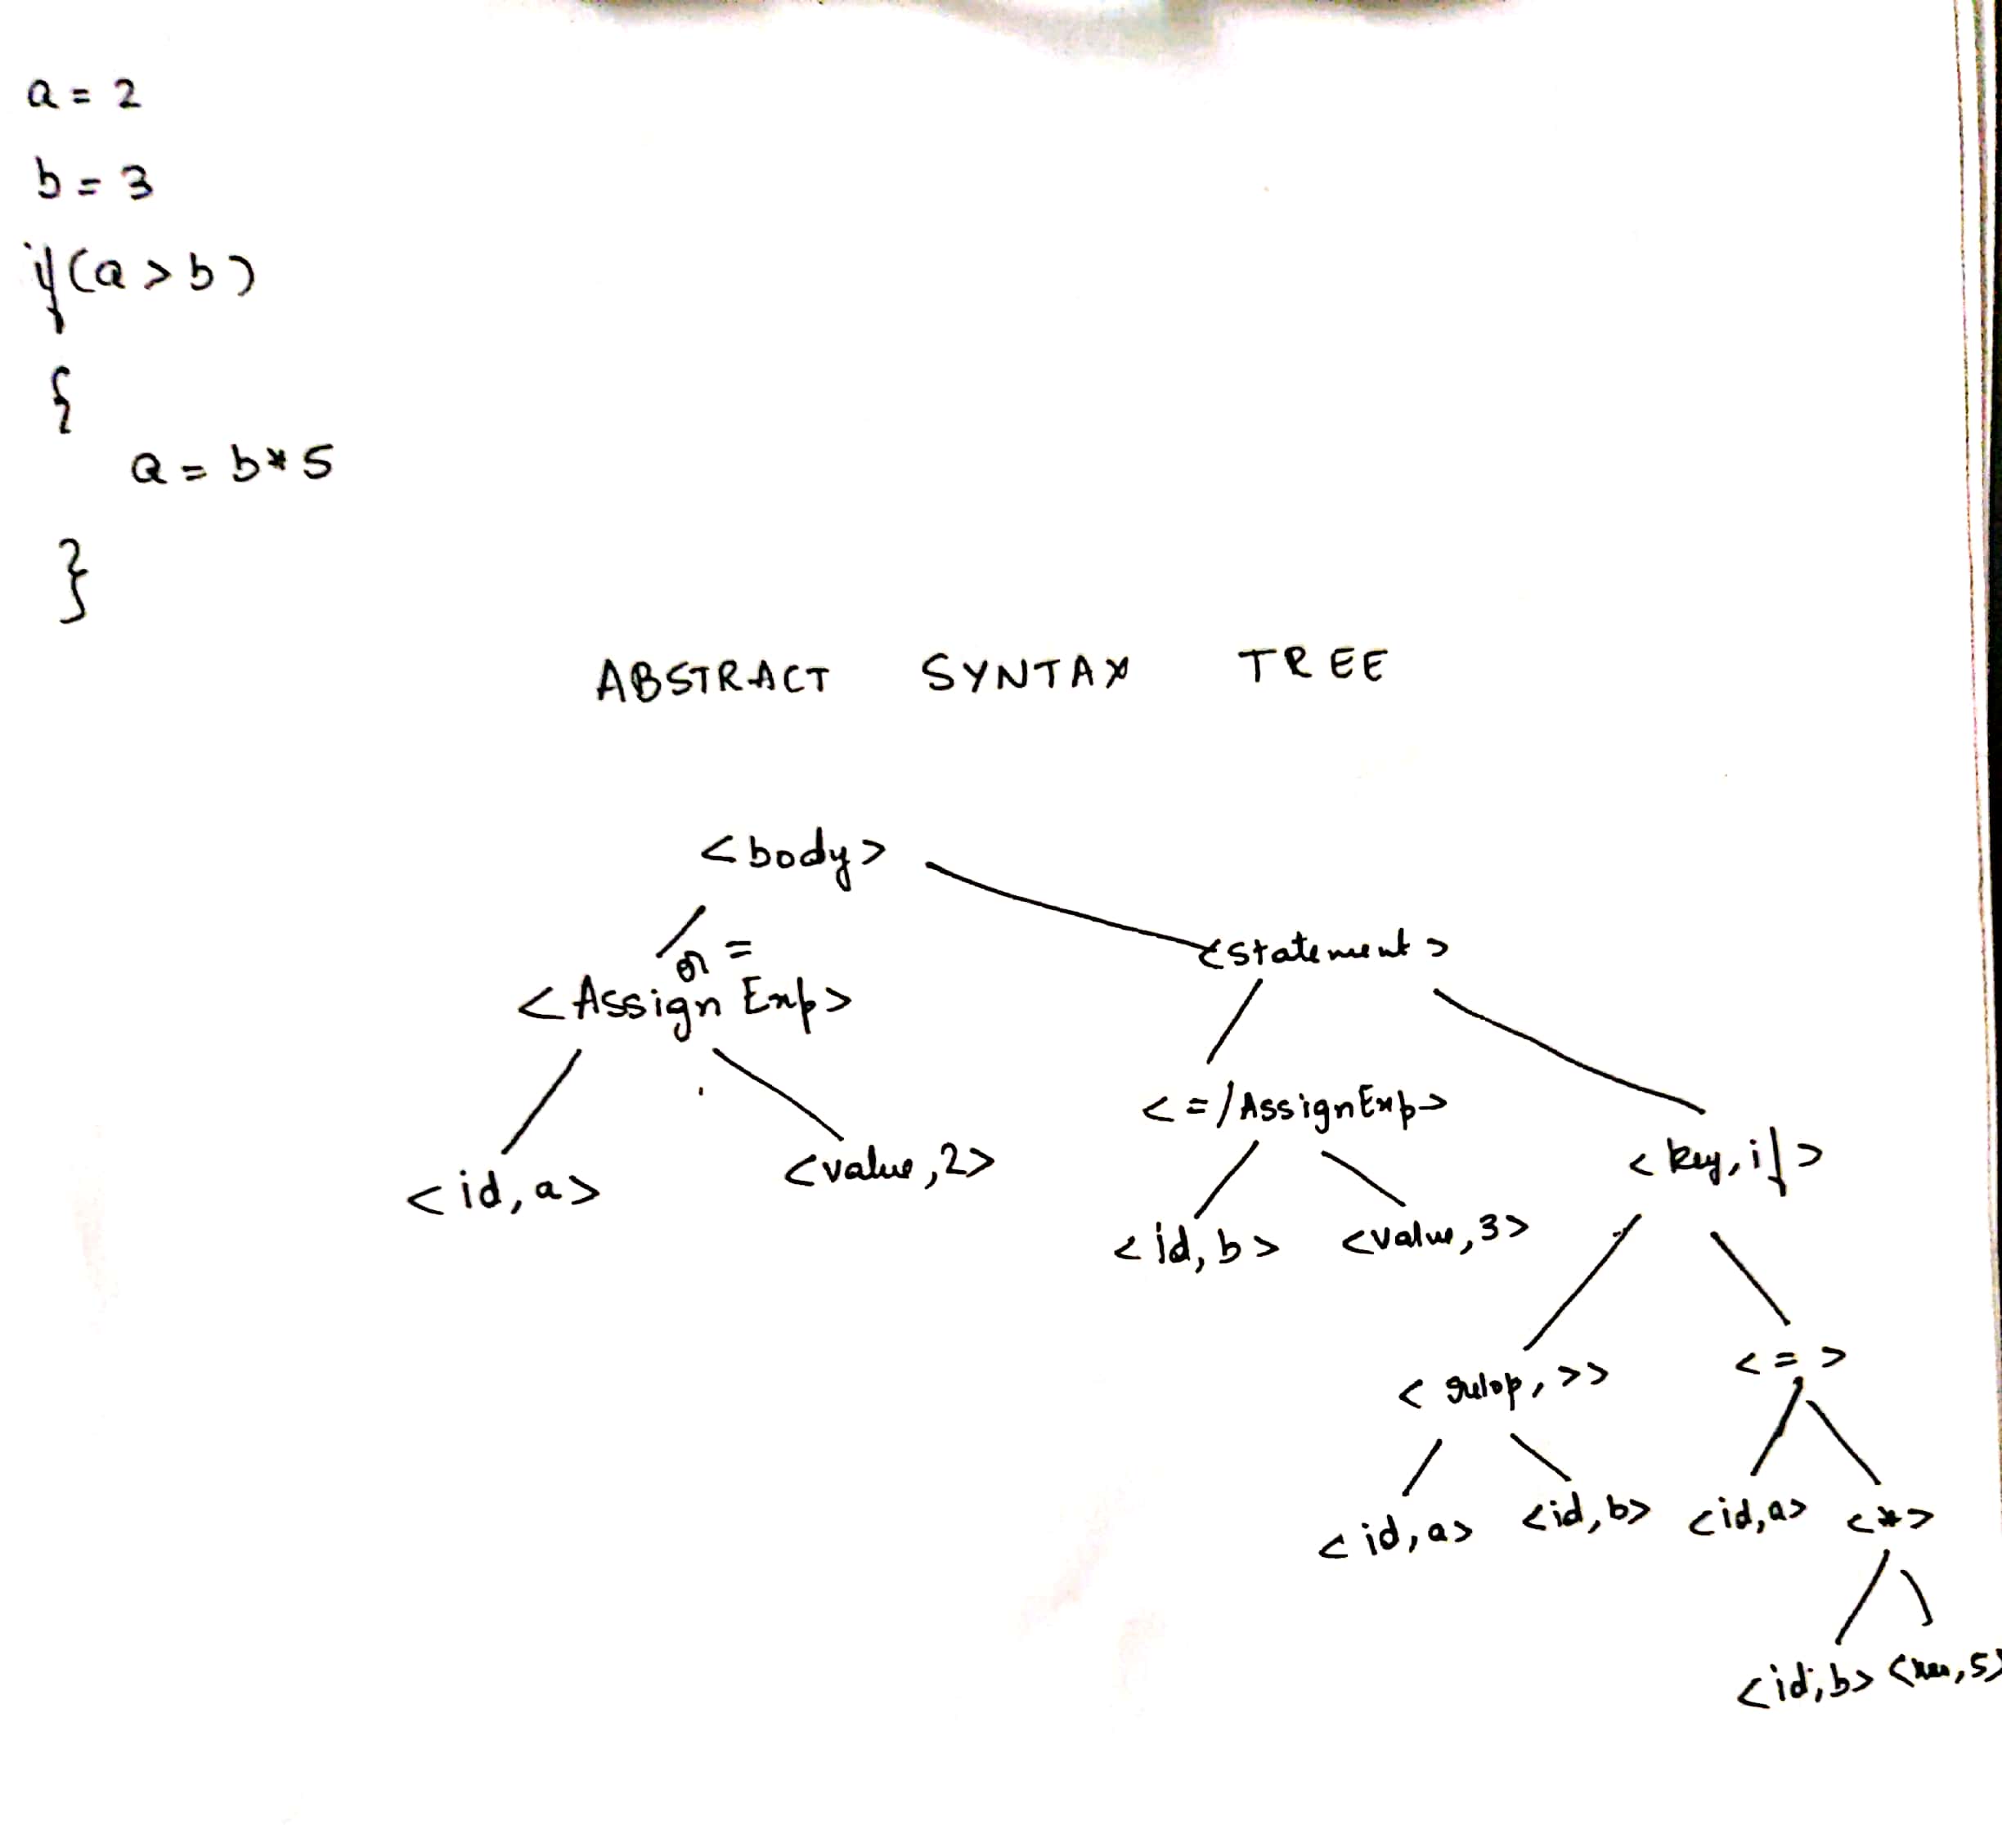 a = 2
b = 3
if(a > b)
{
a = b * 5
}
ABSTRACT SYNTAX TREE
<body>
or =
<Assign Exp>
<statement>
<id, a>
<value, 2>
<=/AssignExp>
<key, if>
<id, b>
<value, 3>
<relop, >>
<=>
<id, a>
<id, b>
<id, a>
<*>
<id, b>
5>